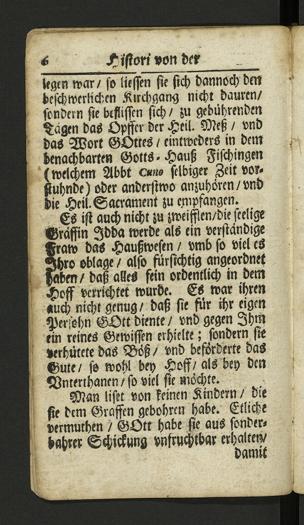 6 Histori von der
legen war / so liessen sie sich dannoch den
beschwerlichen Kirchgang nicht dauren /
sondern sie beflissen sich / zu gebührenden
Tägen das Opffer der Heil. Meß / vnd
das Wort GOttes / eintweders in dem
benachbarten Gotts-Hauß Fischingen
(welchem Abbt Cuno selbiger Zeit vor-
stuhnde) oder anderstwo anzuhören / vnd
die Heil. Sacrament zu empfangen.
Es ist auch nicht zu zweifflen / die seelige
Gräffin Idda werde als ein verständige
Fraw das Haußwesen / vmb so viel es
Ihro oblage / also fürsichtig angeordnet
haben / daß alles fein ordentlich in dem
Hoff verrichtet wurde. Es war ihren
auch nicht genug / daß sie für ihr eigen
Persohn GOtt diente / vnd gegen Ihm
ein reines Gewissen erhielte ; sondern sie
verhütete das Böß / vnd beförderte das
Gute / so wohl bey Hoff / als bey den
Vnterthanen / so viel sie möchte.
Man liset von keinen Kindern / die
sie dem Graffen gebohren habe. Etliche
vermuthen / GOtt habe sie aus sonder-
bahrer Schickung vnfruchtbar erhalten /
damit